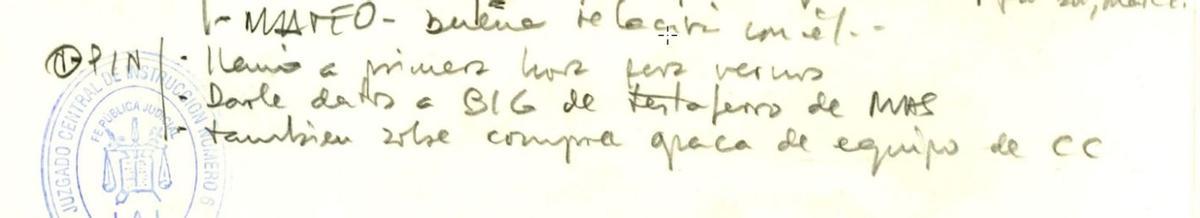 1- MATEO - buena relación con él. -
① PIN | · llamó a primera hora para vernos
· Darle datos a BIG de testaferro de MAS
· también sobre compra opaca de equipo de CC
JUZGADO CENTRAL DE INSTRUCCION NUMERO 6
FE PÚBLICA JUDICIAL